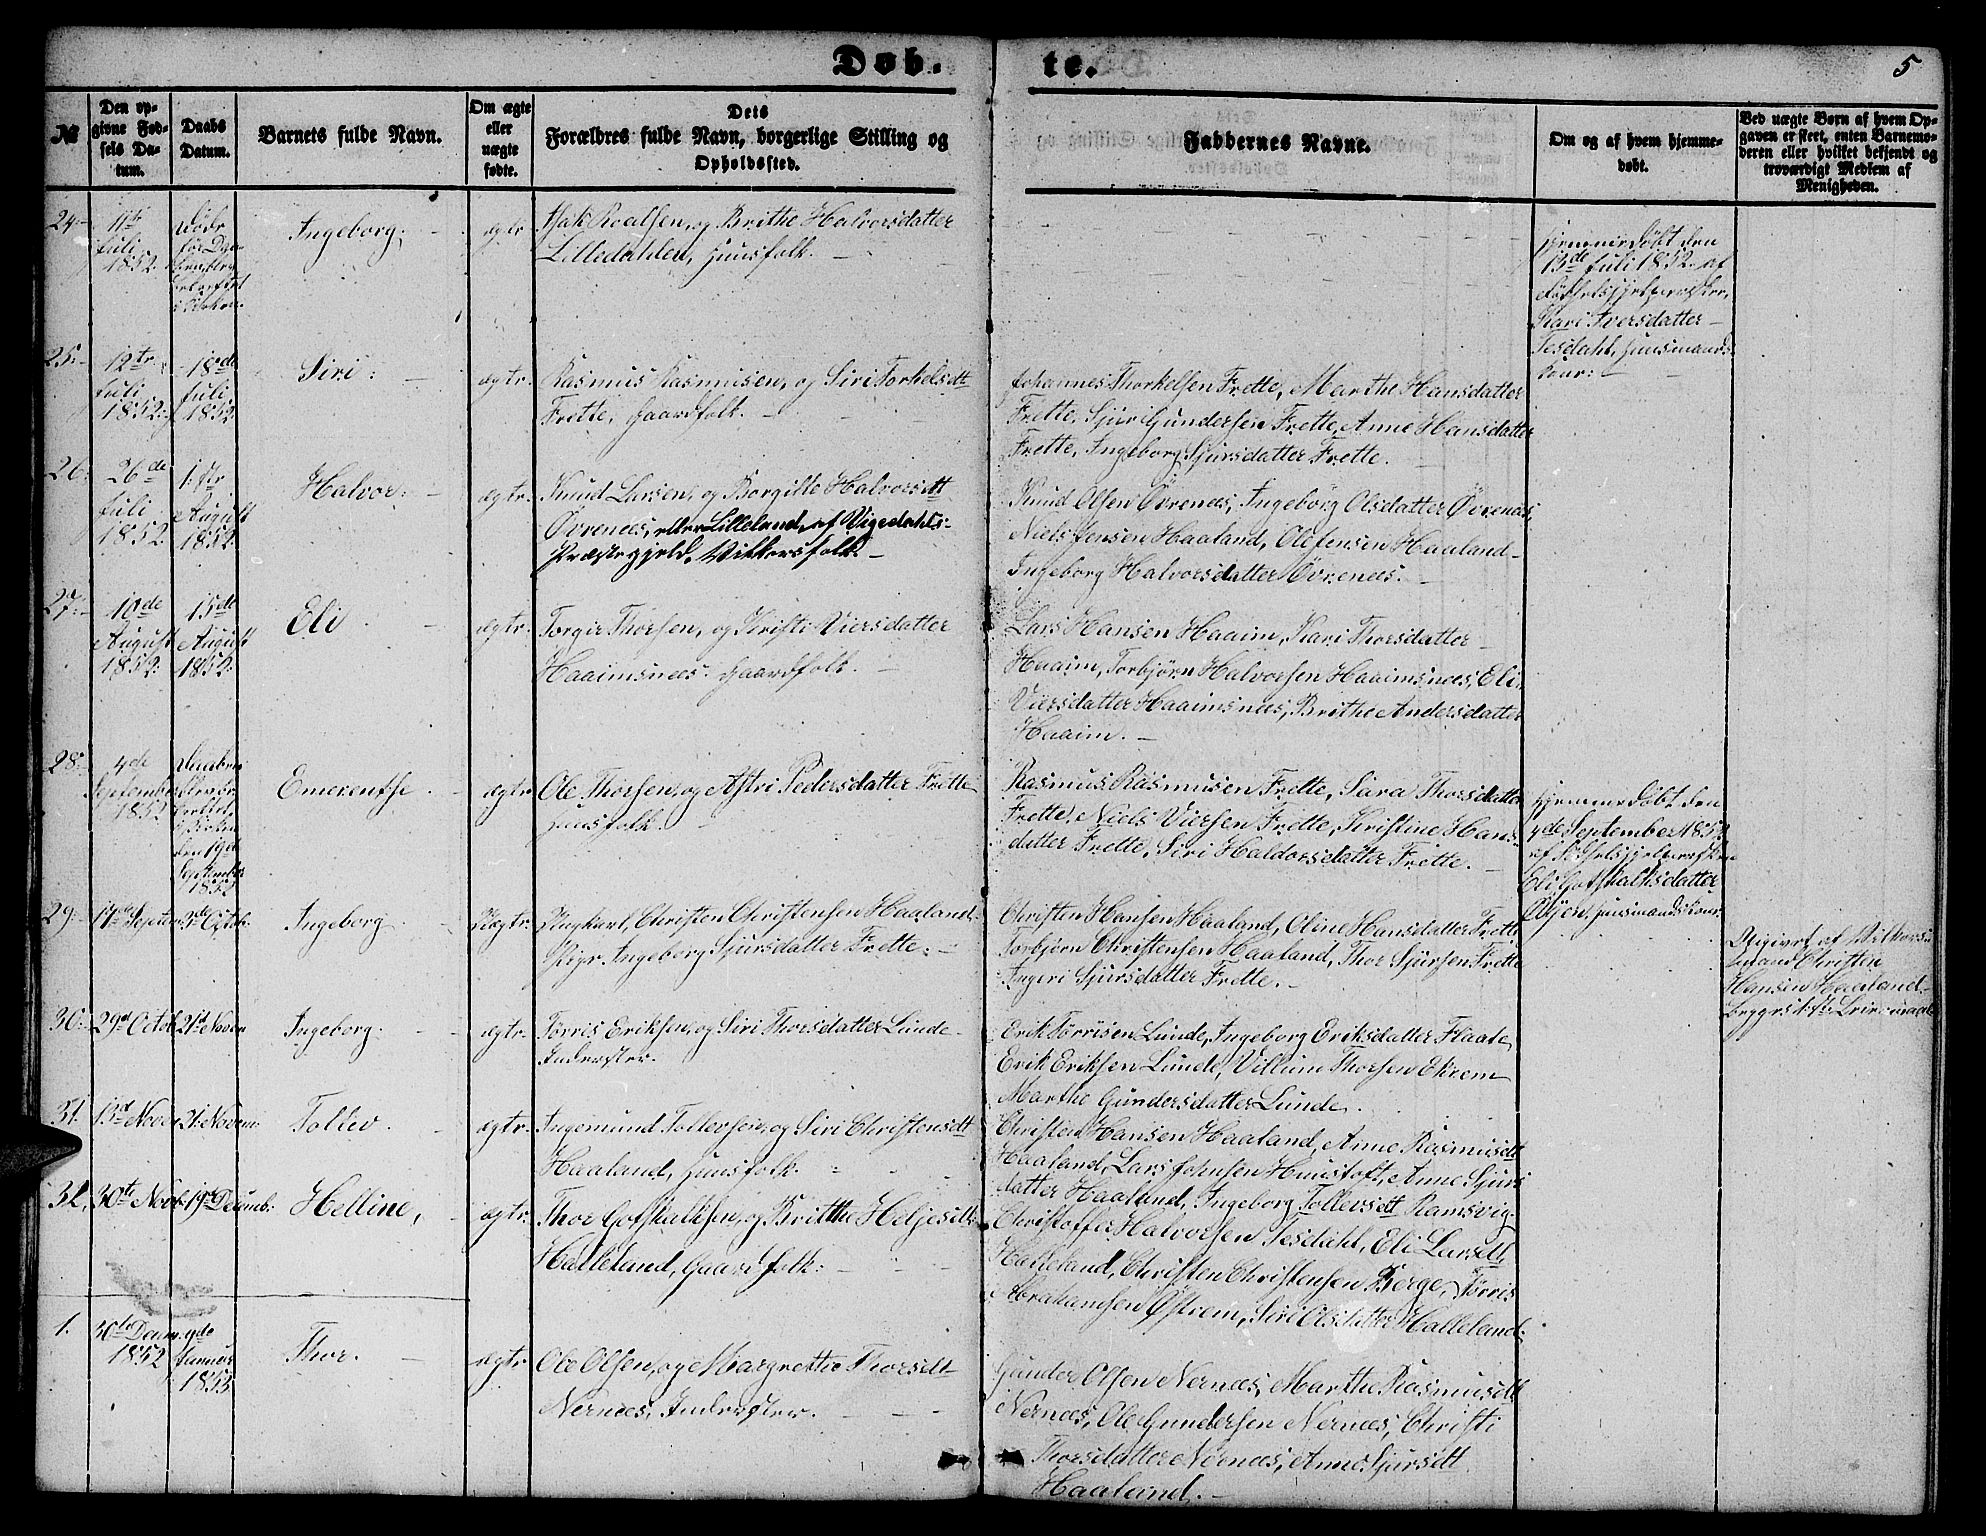 Døb-
te.
5
№
Den op-
givne Fød-
sels Da-
tum.
Daabs
Datum.
Barnets fulde Navn.
Om ægte
eller
uægte
fødte.
Dets
Forældres fulde Navn, borgerlige Stilling og
Opholdssted.
Faddernes Navne.
Om og af hvem hjemme-
døbt.
Ved uægte Børn af hvem Op-
gaven er skeet, enten Barnemo-
deren eller hvilket bekjendt og
troværdigt Medlem af
Menigheden.
24.
11te
Juli
1852.
Ingeborg.
ægte
Isak Roalsen, og Brithe Halvorsdatter
Lilledahlen, Huusfolk.
hjemmedøbt den
13de Juli 1852. af
Kari Iversdatter
Tesdahl, Huusmands
kone:
25.
12te
Juli
1852.
18de
Juli
1852.
Siri:
ægte
Rasmus Rasmusen, og Siri Torkelsdt
Frette, Gaardfolk.
Johannes Thorkelsen Frette, Marthe Hansdatter
Frette, Sjur Gundersen Frette, Anne Hansdatter
Frette, Ingeborg Sjursdatter Frette.
26.
26de
Juli
1852
1ste
August
1852.
Halvor.
ægte
Knud Larsen, og Borgille Halvorsdtt
Øvrenæs, eller Lilleland, af Vigedahls
Præstegjeld. Vilkorsfolk.
Knud Olsen Øvrenæs, Ingeborg Olsdatter Øvrenæs,
Niels Jensen Haaland, Ole Jensen Haaland
Ingeborg Halvorsdatter Øvrenæs.
27.
10de
August
1852.
15de
August
1852.
Eli
ægte
Torgir Thorsen, og Kristi Viersdatter
Haaimsnæs. Gaardfolk.
Lars Hansen Haaim, Kari Thorsdatter
Haaim, Torbjørn Halvorsen Haaimsnæs, Eli
Viersdatter Haaimsnæs, Brithe Andersdatter
Haaim.
28.
4de
September
1852
den 19de
September
1852
Emerentse
ægte
Ole Thorsen, og Astri Pedersdatter Frette
Huusfolk.
Rasmus Rasmusen Frette, Sara Thorsdatter
Frette, Niels Viersen Frette, Kristine Hans-
datter Frette, Siri Haldorsdatter Frette.
hjemmedøbt den
4de September 1852
Eli Gotskalksdatter
Ølsjen, Huusmandskone.
29.
17de Septem
3de Octob.
Ingeborg
Uægte.
Ungkarl, Christen Christensen Haaland,
Pige. Ingeborg Sjursdatter Frette.
Christen Hansen Haaland, Oline Hansdatter Frette
Torbjørn Christensen Haaland, Thor Sjursen Frette
Ingeri Sjursdatter Frette.
Opgivet af Vilkors
mand Christen
Hansen Haaland.
begges 1ste Leiermaal
30.
29de Octob.
21de Novem
Ingeborg.
ægte.
Tørris Eriksen, og Siri Thorsdatter Lunde
Inderster.
Erik Tørrisen Lunde, Ingeborg Eriksdatter Flaate,
Erik Eriksen Lunde, Villum Thorsen Ekrem
Marthe Gundersdatter Lunde.
31.
13de Novem
21. Novem:
Tollev.
ægte.
Ingemund Tollevsen, og Siri Christensdtt
Haaland, Huusfolk.
Christen Hansen Haaland, Anne Rasmusdtt
Haaland, Lars Johnsen Huustoft, Anne Sjurs
datter Haaland, Ingeborg Tollevsdtt Ramsvig.
32.
30te Novb.
19de Decemb:
Helline,
ægte.
Thor Gotskalksen, og Brithe Heljesdtt:
Halleland, Gaardfolk:
Christoffer Halvorsen Tesdahl, Eli Larsdtt,
Halleland, Christen Christensen Berge, Tørris
Abrahamsen Østrem, Siri Olsdatter Halleland.
1.
30te Decem.
1852
Januar
1853
Thor.
ægte
Ole Olsen, og Margrethe Thorsdtt
Nernæs, Inderster.
Gunder Olsen Nernæs, Marthe Rasmusdtt
Nernæs, Ole Gundersen Nernæs, Christi
Thorsdatter Nernæs, Anne Sjursdtt
Haaland.